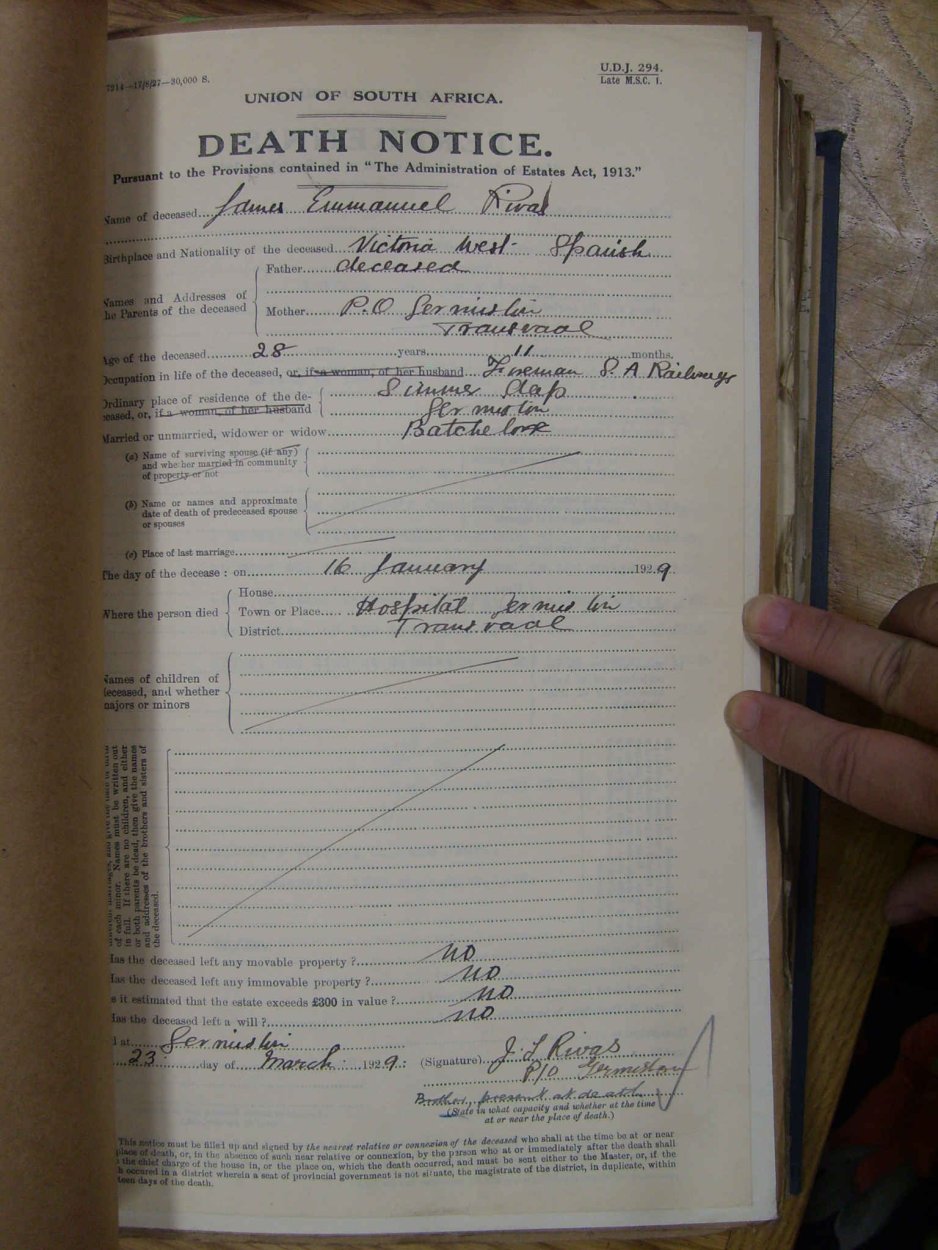 7914—17/8/27—30,000 S.
U.D.J. 294.
Late M.S.C. 1.
UNION OF SOUTH AFRICA.
DEATH NOTICE.
Pursuant to the Provisions contained in "The Administration of Estates Act, 1913."
Name of deceased James Emmanuel Rivas
Birthplace and Nationality of the deceased Victoria West Spanish
Names and Addresses of the Parents of the deceased
Father deceased
Mother P.O Germiston
Transvaal
Age of the deceased 28 years 11 months.
Occupation in life of the deceased, or, if a woman, of her husband Fireman S. A Railways
Ordinary place of residence of the deceased, or, if a woman, of her husband
Simmer
Germiston
Married or unmarried, widower or widow Batchelor
(a) Name of surviving spouse (if any)
and whether married in community
of property or not
(b) Name or names and approximate
date of death of predeceased spouse
or spouses
(c) Place of last marriage
The day of the decease: on 16 January 1929
Where the person died
House
Town or Place Hospital Germiston
District Transvaal
Names of children of
deceased, and whether
majors or minors
of each minor. Names must be written out
in full. If there are no children, and either
or both parents be dead, then give the names
and addresses of the brothers and sisters of
the deceased.
Has the deceased left any movable property? no
Has the deceased left any immovable property? no
Is it estimated that the estate exceeds £300 in value? no
Has the deceased left a will? no
d at Germiston
23 day of March 1929:
(Signature) J. L Rivas
P/O Germiston
Brother, present at death
(State in what capacity and whether at the time
at or near the place of death.)
This notice must be filled up and signed by the nearest relative or connexion of the deceased who shall at the time be at or near
place of death, or, in the absence of such near relative or connexion, by the person who at or immediately after the death shall
the chief charge of the house in, or the place on, which the death occurred, and must be sent either to the Master, or, if the
h occured in a district wherein a seat of provincial government is not situate, the magistrate of the district, in duplicate, within
teen days of the death.